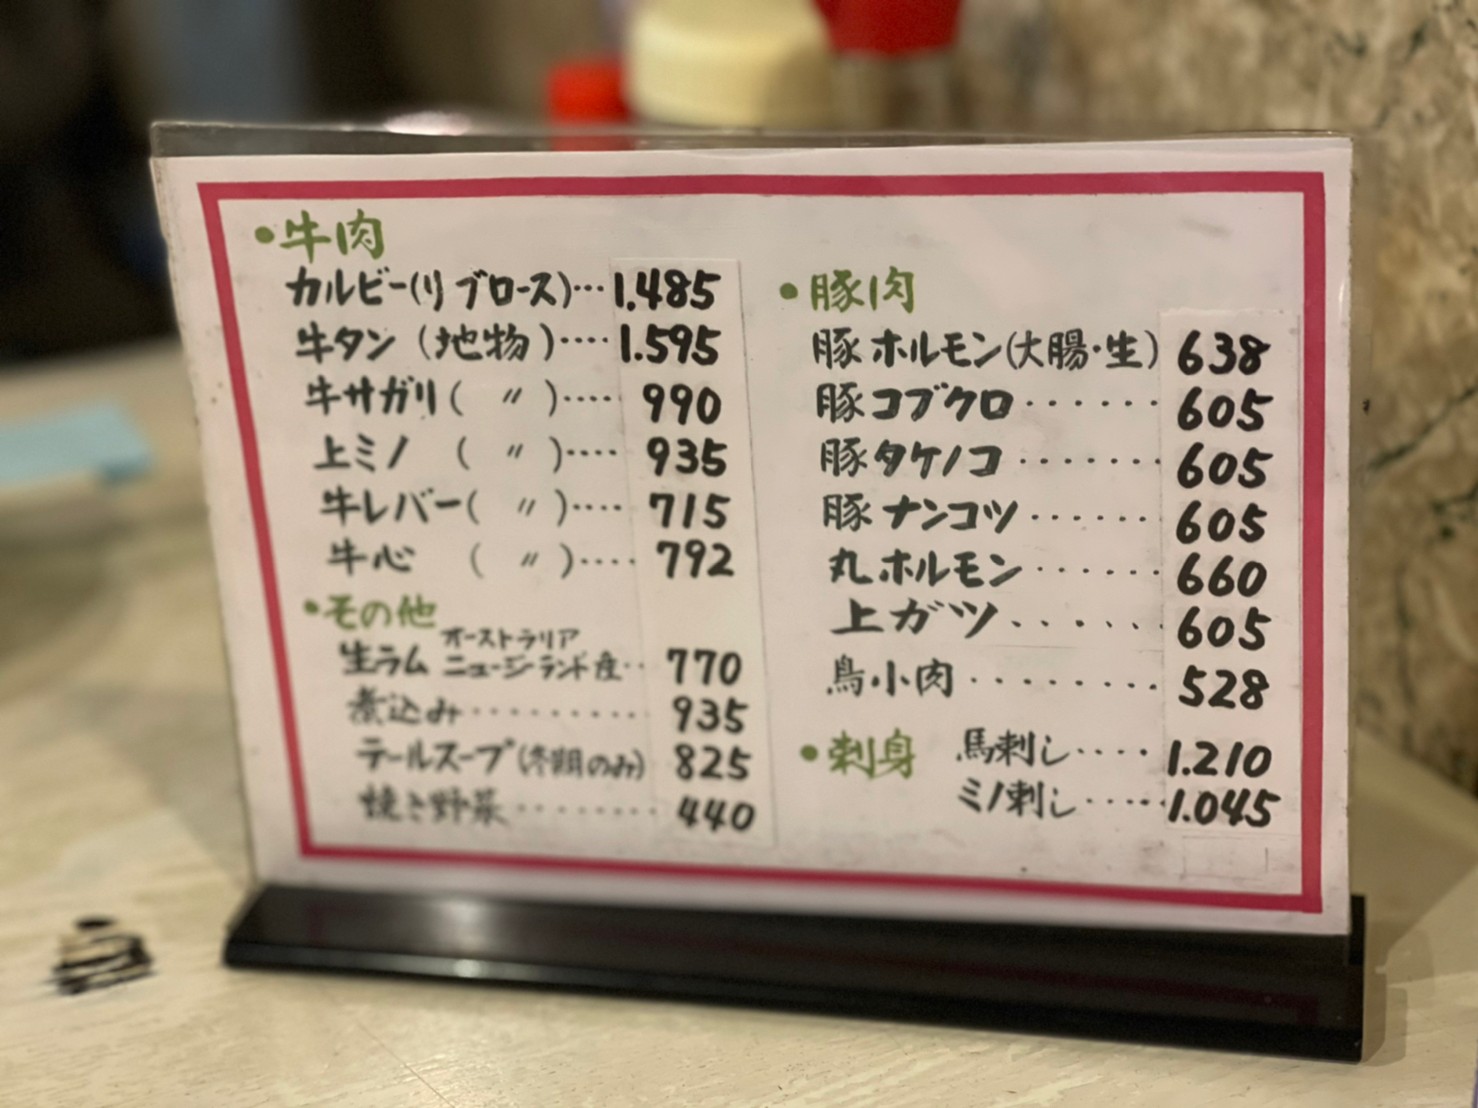 •牛肉
カルビー(リブロース)…1.485
牛タン(地物)‥‥1.595
牛サガリ(〃)‥‥990
上ミノ(〃)‥‥935
牛レバー(〃)‥‥715
牛心(〃)‥‥792
•その他
オーストラリア
生ラム ニュージーランド産‥770
煮込み‥‥‥‥935
テールスープ(冬期のみ)825
焼き野菜‥‥‥‥440
•豚肉
豚ホルモン(大腸・生)638
豚コブクロ‥‥‥605
豚タケノコ‥‥‥605
豚ナンコツ‥‥‥605
丸ホルモン‥‥‥660
上ガツ‥‥‥605
鳥小肉‥‥‥‥528
•刺身 馬刺し‥‥1.210
ミノ刺し‥‥1.045